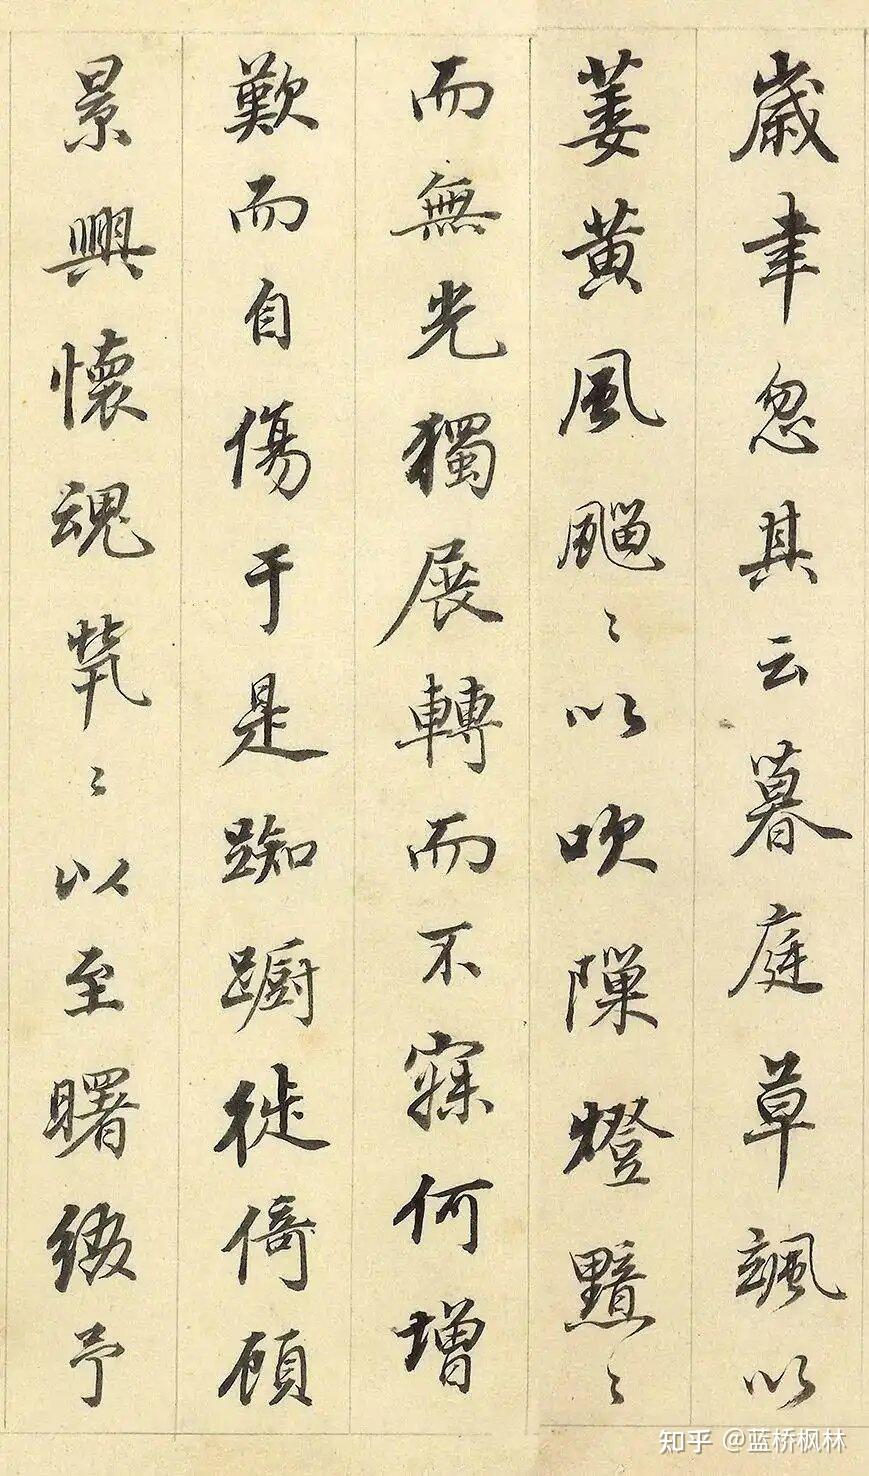 歲聿忽其云暮庭草颯以
萎黃風飀〻以吹隟燈黯〻
而無光獨展轉而不寐何增
歎而自傷于是踟躕徙倚顧
景興懷魂煢〻以至曙緩予
知乎 @蓝桥枫林